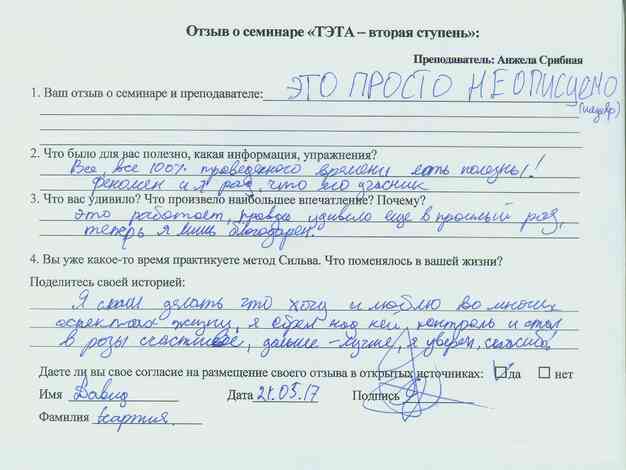 Отзыв о семинаре «ТЭТА – вторая ступень»:
Преподаватель: Анжела Срибная
1. Ваш отзыв о семинаре и преподавателе: ЭТО ПРОСТО НЕОПИСУЕМО
(шедевр)
2. Что было для вас полезно, какая информация, упражнения?
Все, все 100% проведенного времени есть полезны!
феномен и я рад, что его участник
3. Что вас удивило? Что произвело наибольшее впечатление? Почему?
это работает, правда удивило еще в прошлый раз,
теперь я лишь благодарен.
4. Вы уже какое-то время практикуете метод Сильва. Что поменялось в вашей жизни?
Поделитесь своей историей:
Я стал делать что хочу и люблю во многих
аспектах жизни, я обрел над ней контроль и стал
в разы счастливее, дальше - лучше, я уверен, спасибо,
Даете ли вы свое согласие на размещение своего отзыва в открытых источниках: да нет
Имя Давид Дата 21.05.17 Подпись
Фамилия